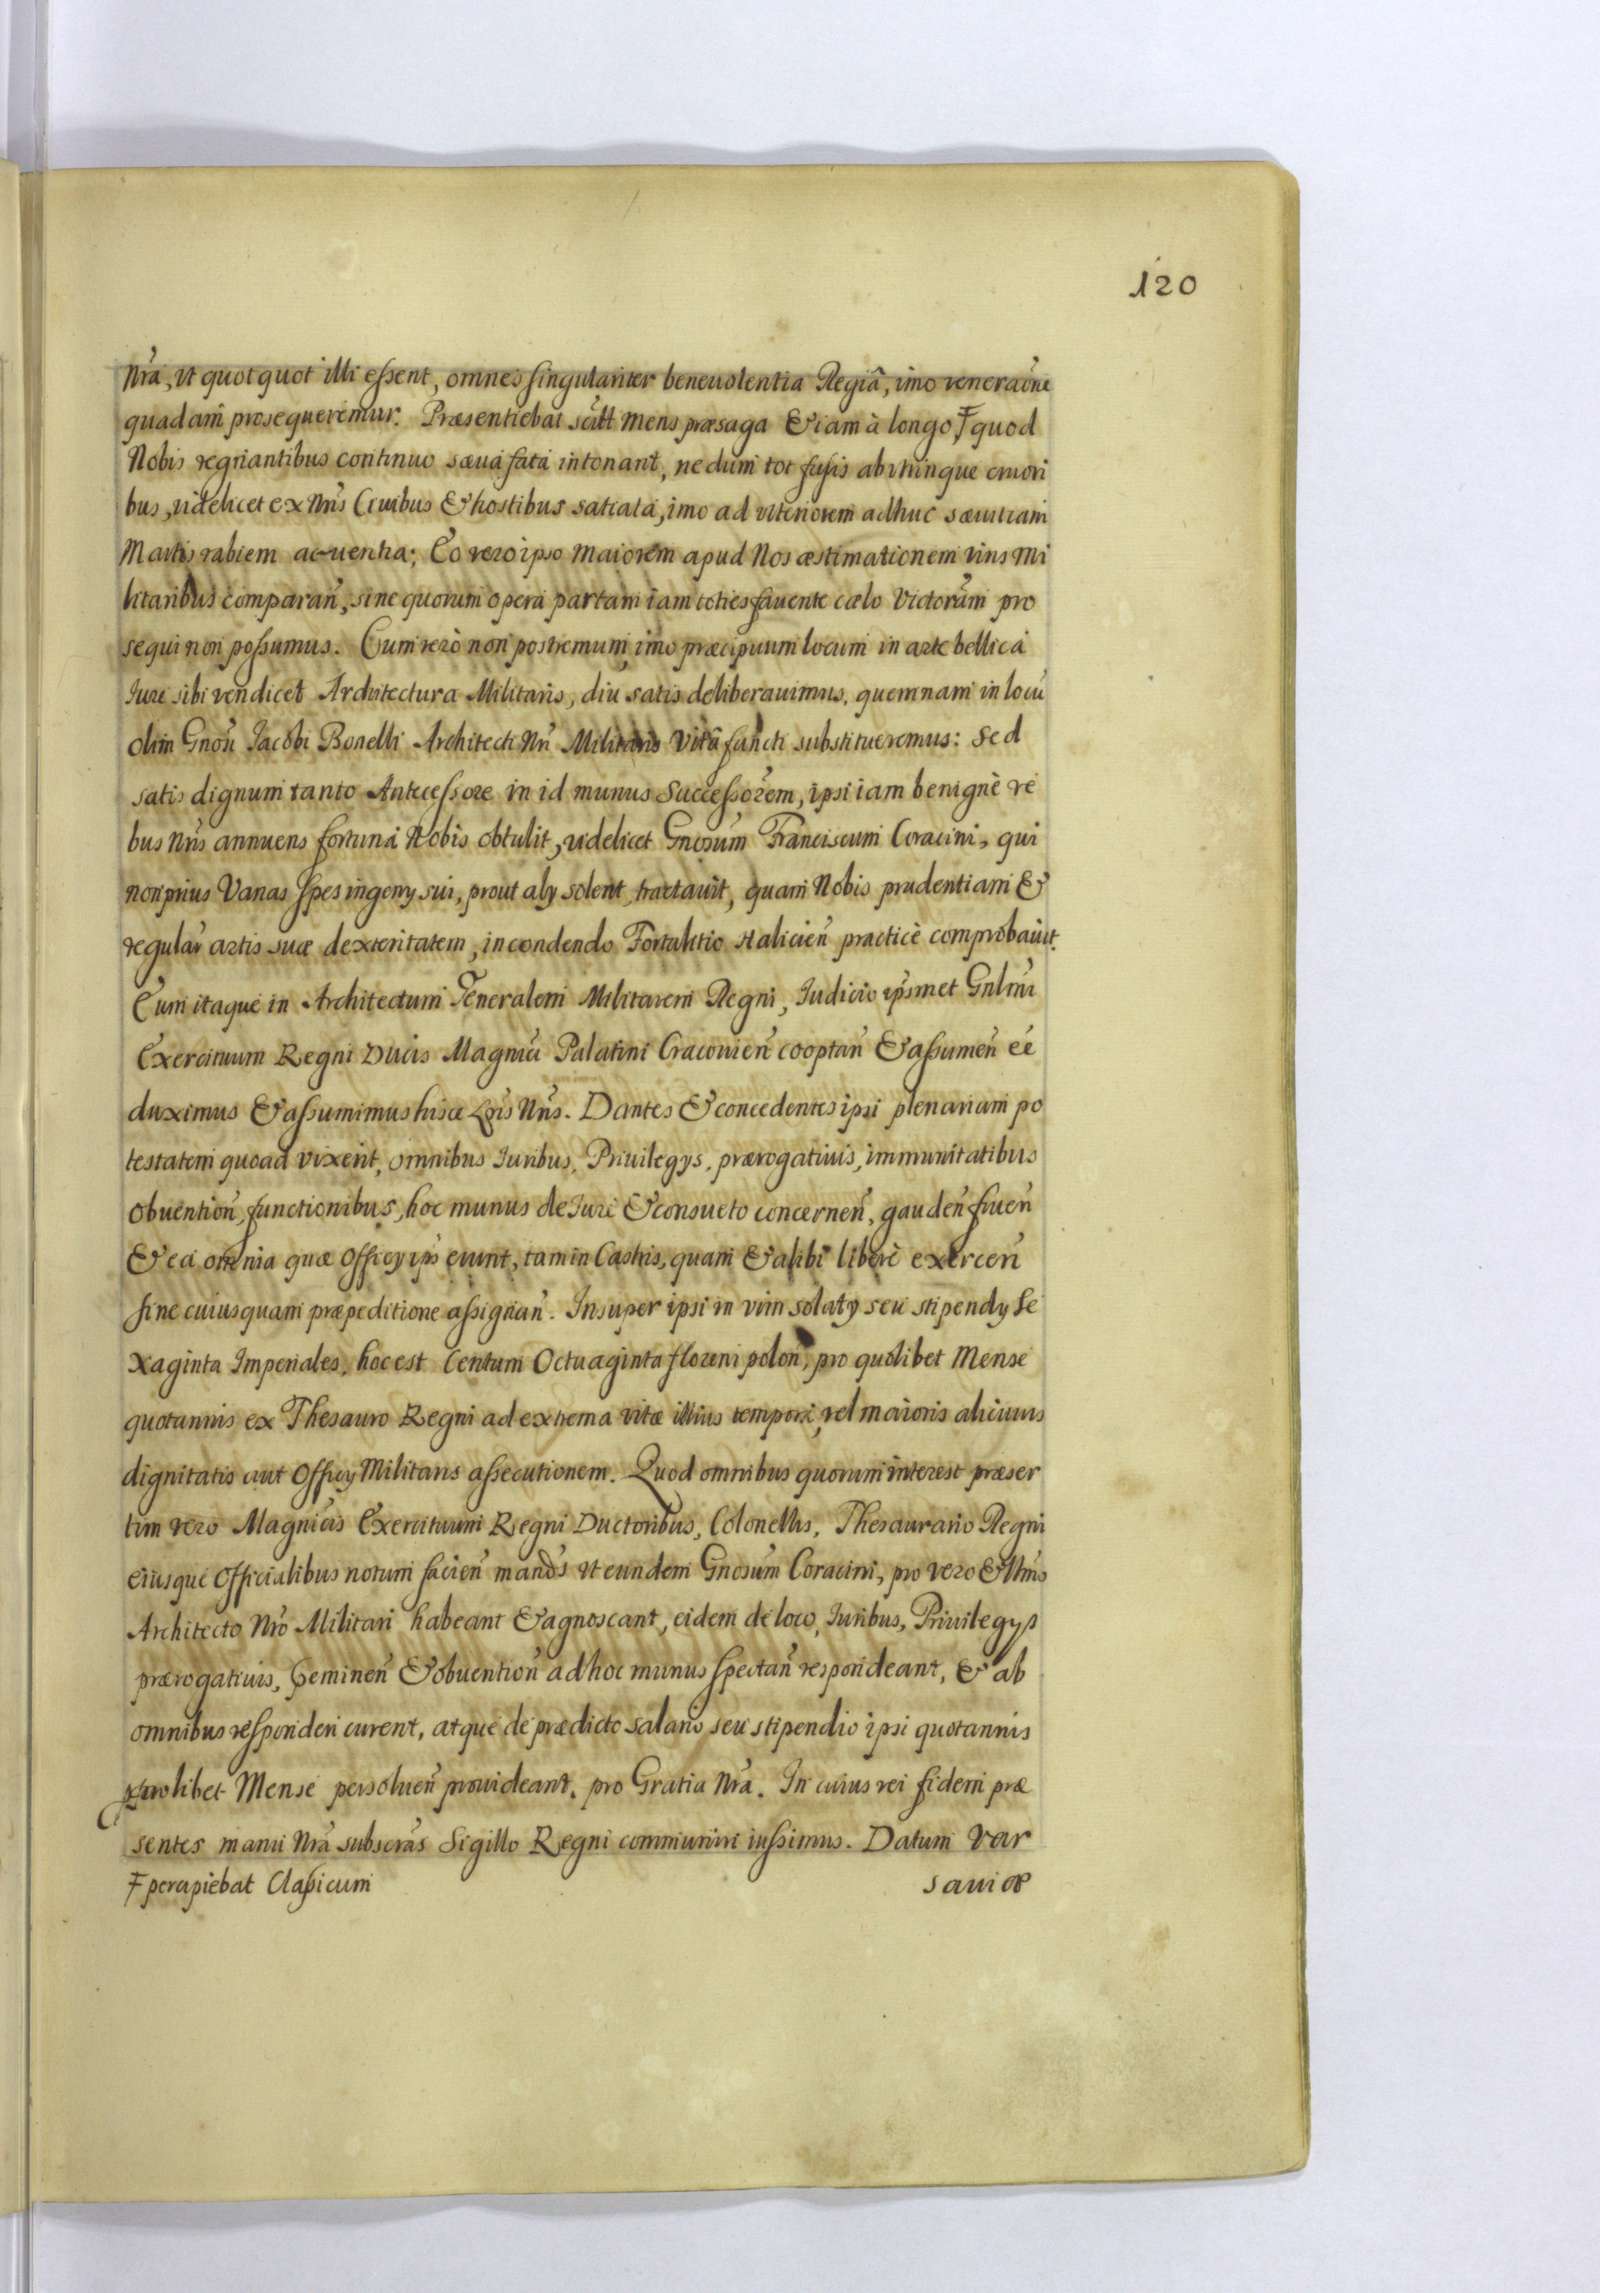 120
Nr̃a, ut quotquot illi essent, omnes singulariter beneuolentia Regiâ, imo veneraõne
quadam prosequeremur. Præsentiebat scilt Mens præsaga & iam à longo Ŧ quod
Nobis regnantibus continuo sæua fata intonant, nedum tot fusis ab utrinque cruori
bus, uidelicet ex Nr̃is Ciuibus & hostibus satiata, imo ad ulteriorem adhuc sæuitiam
Martis rabiem acuentia; Eo vero ipso Maiorem apud Nos æstimationem viris Mi
litaribus comparañ, sine quorum opera partam iam toties fauente cælo Victoriam pro
sequi non possumus. Cum verò non postremum, imo præcipuum locum in arte bellica
Iure sibi vendicet Architectura Militaris, diu satis deliberauimus, quemnam in locũ
olim Gnosi Iacobi Bonelli Architecti Nr̃i Militaris Vitâ functi substitueremus: Sed
satis dignum tanto Antecessore in id munus Successorem, ipsi iam benignè re
bus Nr̃is annuens fortuna Nobis obtulit, uidelicet Gnosum Franciscum Coracini, qui
non prius Vanas spes ingeny sui, prout aly solent, tractauit, quam Nobis prudentiam &
regulañ artis suæ dexteritatem, in condendo Fortalitio Halicień practicè comprobauit.
Eum itaque in Architectum Generalem Militarem Regni, Iudicio ipsmet Gnlmi
Exercituum Regni Ducis Magnici Palatini Cracovień cooptań & assumeń eé
duximus & assumimus hisce Lris Nr̃is. Dantes & concedentes ipsi plenariam po
testatem quoad vixerit, omnibus Iuribus, Priuilegys, prærogatiuis, immunitatibus
obuentioń, functionibus, hoc munus de Iure & consueto concerneń, gaudeń frueń
& ea omnia quæ Officy ips erunt, tam in Castris, quam & alibi liberè exerceń
sine cuiusquam præpeditione assignań. Insuper ipsi in vim solaty seu stipendy Se
xaginta Imperiales, hoc est Centum Octuaginta floreni poloń, pro quolibet Mense
quotannis ex Thesauro Regni ad extrema vitæ illius tempora, vel maioris alicuius
dignitatis aut Officy Militaris assecutionem. Quod omnibus quorum interest præser
tim vero Magnicis Exercituum Regni Ductoribus, Colonellis, Thesaurario Regni
eiusque Officialibus notum facień mands ut eundem Gnosum Coracini, pro vero & ltmo
Architecto Nr̃o Militari habeant & agnoscant, eidem de loco, Iuribus, Priuilegys
prærogatiuis, p̃emineń & obuentioń ad hoc munus spectań respondeant, & ab
omnibus responderi curent, atque de prædicto salario seu stipendio ipsi quotannis
quolibet Mense persolueń prouideant. pro Gratia Nr̃a. In cuius rei fidem præ
sentes manu Nr̃a subscras Sigillo Regni communiri iussimus. Datum Var
Ŧ percipiebat Classicum
sauiæ